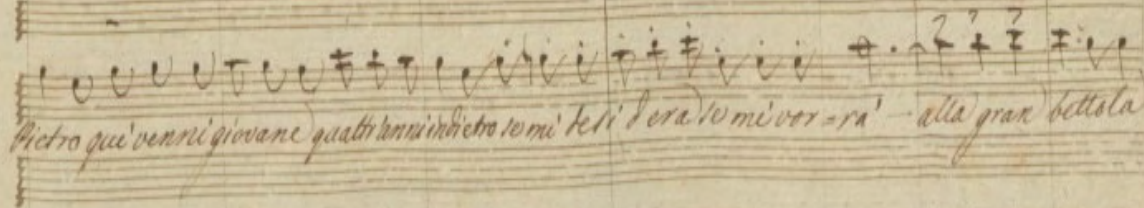 Pietro qui venni giovane quattr'anni indietro se mi desidera se mi vor=rà alla gran bettola